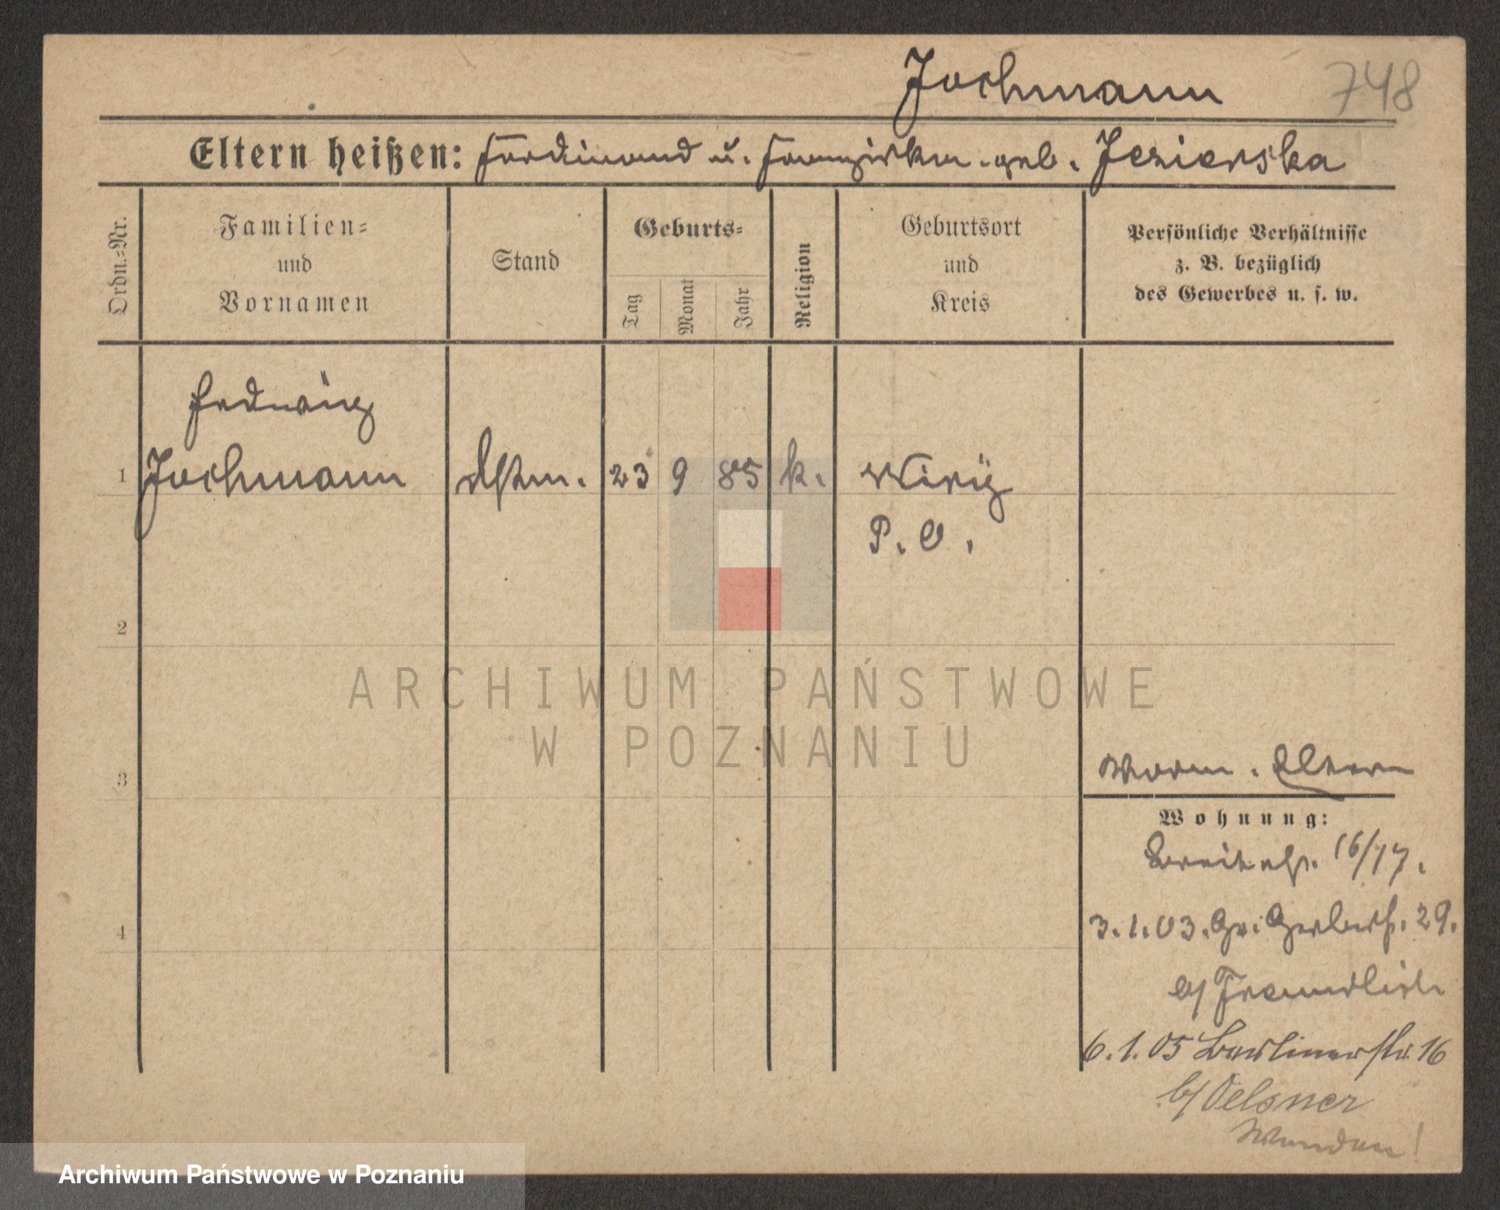 Jochmann 748
Eltern heißen: Ferdinand u. Franziska geb. Jezierska
Ordn.-Nr.
Familien-
und
Vornamen
Stand
Geburts-
Tag
Monat
Jahr
Religion
Geburtsort
und
Kreis
Persönliche Verhältnisse
z. B. bezüglich
des Gewerbes u. s. w.
Hedwig
1 Jochmann 23 9 85 k.
P. O.
2
3
4
Eltern
Wohnung:
Breitestr. 16/17.
3.1.03. Gr. Gerberstr. 29.
b/ Freundlich
6.1.05 Berlinerstr. 16
b/ Oelsner
ARCHIWUM PAŃSTWOWE
W POZNANIU
Archiwum Państwowe w Poznaniu